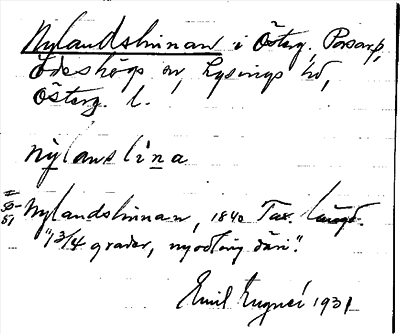 Nylandslinnan i Österg. Porsarp,
Ödeshögs sn, Lysings hd,
Österg. l.
nỳlanslina
II
50-
51
Nylandslinnan, 1840 Tax. längd.
"1 3/4 grader, nyodling däri".
Emil 1931